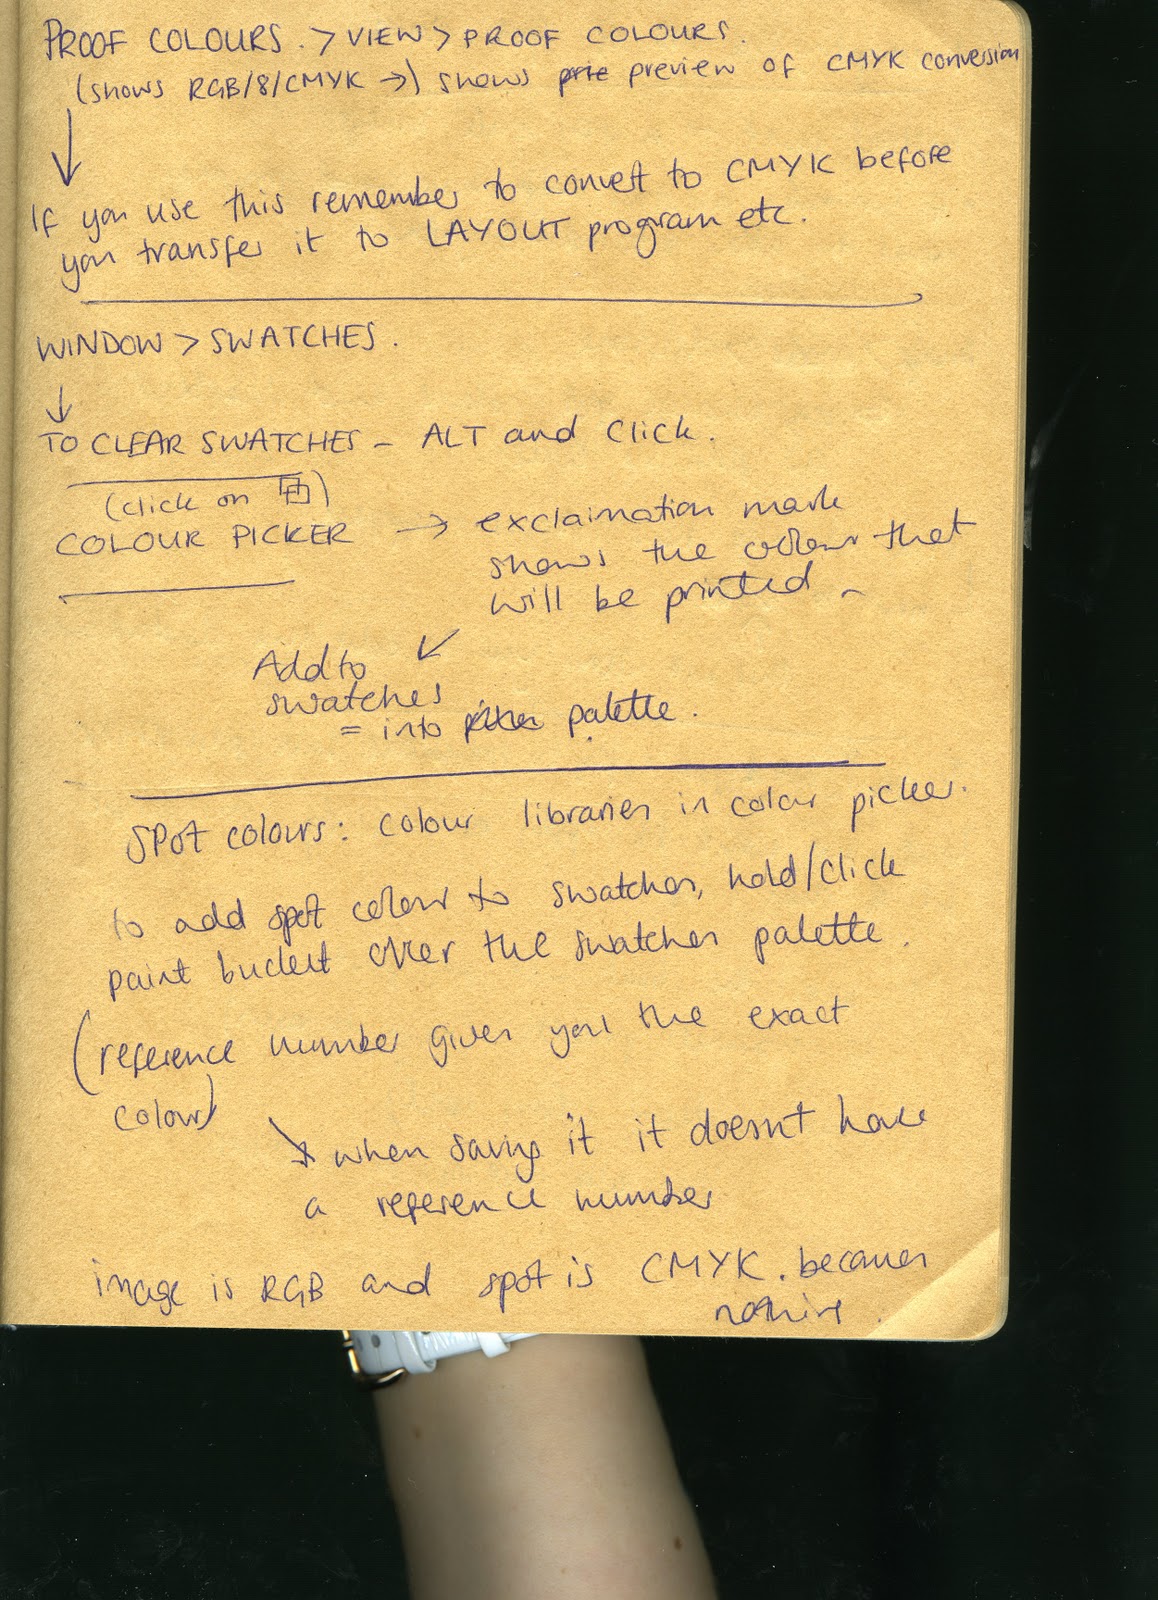 PROOF COLOURS. > VIEW > PROOF COLOURS.
(shows RGB/8/CMYK →) shows prie preview of CMYK conversion
↓
If you use this remember to convert to CMYK before
you transfer it to LAYOUT program etc.
WINDOW > SWATCHES.
↓
TO CLEAR SWATCHES - ALT and click.
(click on )
COLOUR PICKER → exclaimation mark
shows the colour that
will be printed
↙
Add to
swatches
= into palette.
SPOT colours: colour libraries in colour picker.
to add spot colour to swatches, hold/click
paint bucket over the swatches palette.
(reference number gives you the exact
colour)
↘ when saving it it doesn't have
a reference number
image is RGB and spot is CMYK. becomes
nothing.